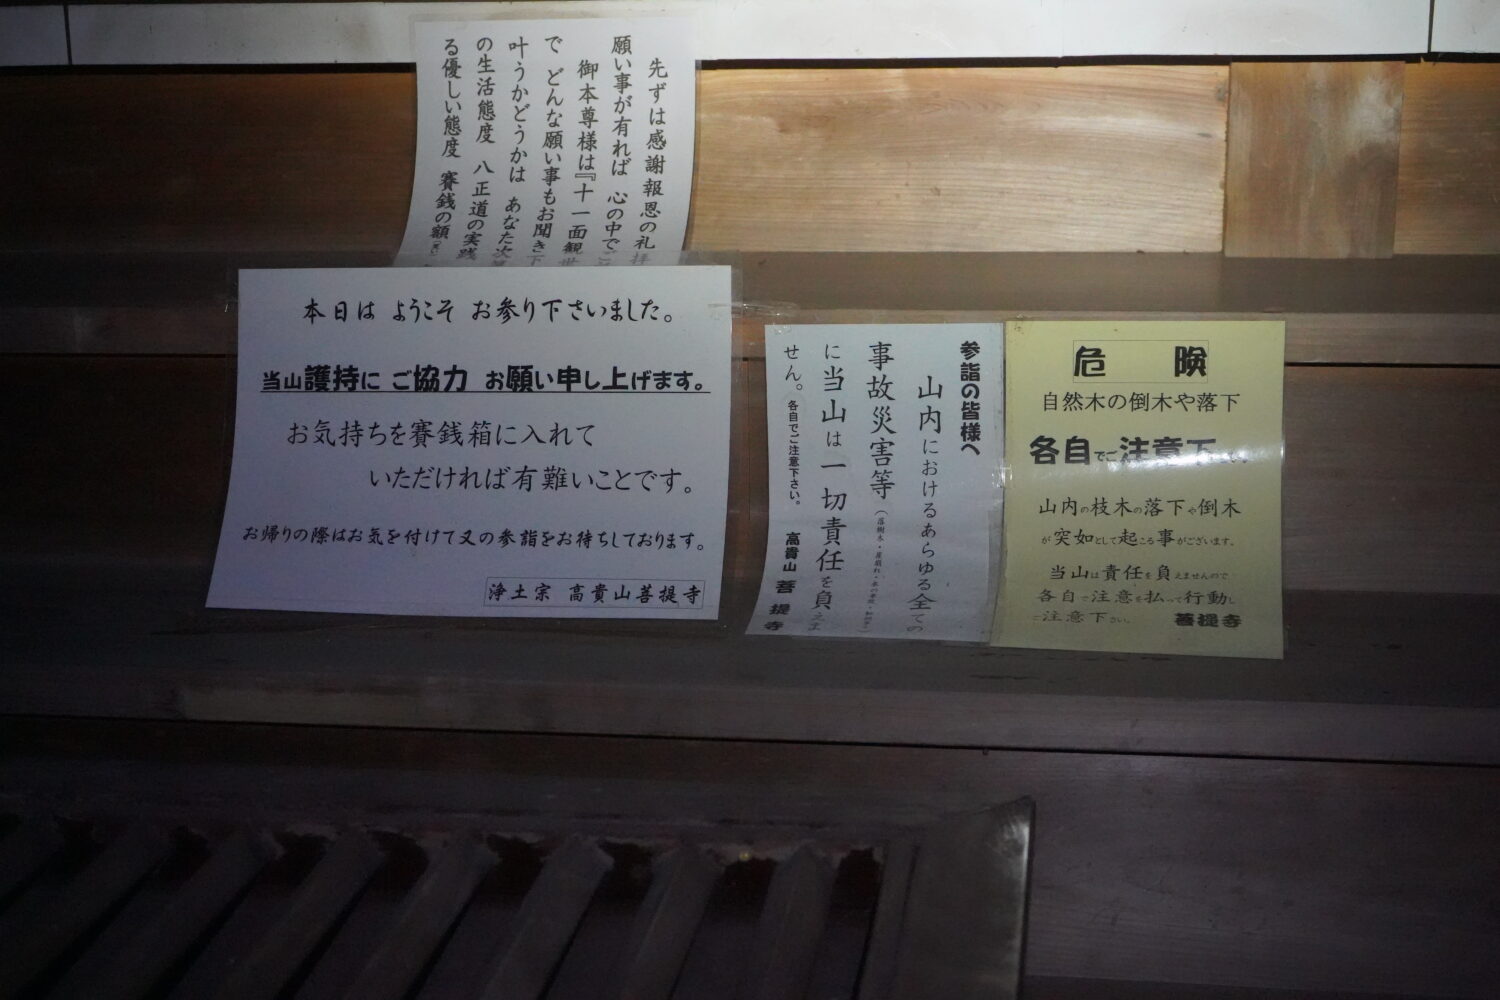 先ずは感謝報恩の礼拝
願い事が有れば 心の中でご
御本尊様は『十一面観世
で どんな願い事もお聞き下
叶うかどうかは あなた次第
の生活態度 八正道の実践
る優しい態度 賽銭の額
本日は ようこそ お参り下さいました。
当山護持に ご協力 お願い申し上げます。
お気持ちを賽銭箱に入れて
いただければ有難いことです。
お帰りの際はお気を付けて又の参詣をお待ちしております。
浄土宗 高貴山菩提寺
参詣の皆様へ
山内におけるあらゆる全ての
事故災害等
に当山は一切責任を負えま
せん。各自でご注意下さい。 高貴山 菩提寺
危険
自然木の倒木や落下
各自でご注意下
山内の枝木の落下や倒木
が突如として起こる事がございます。
当山は責任を負えませんので
各自で注意を払って行動し
ご注意下さい。 菩提寺